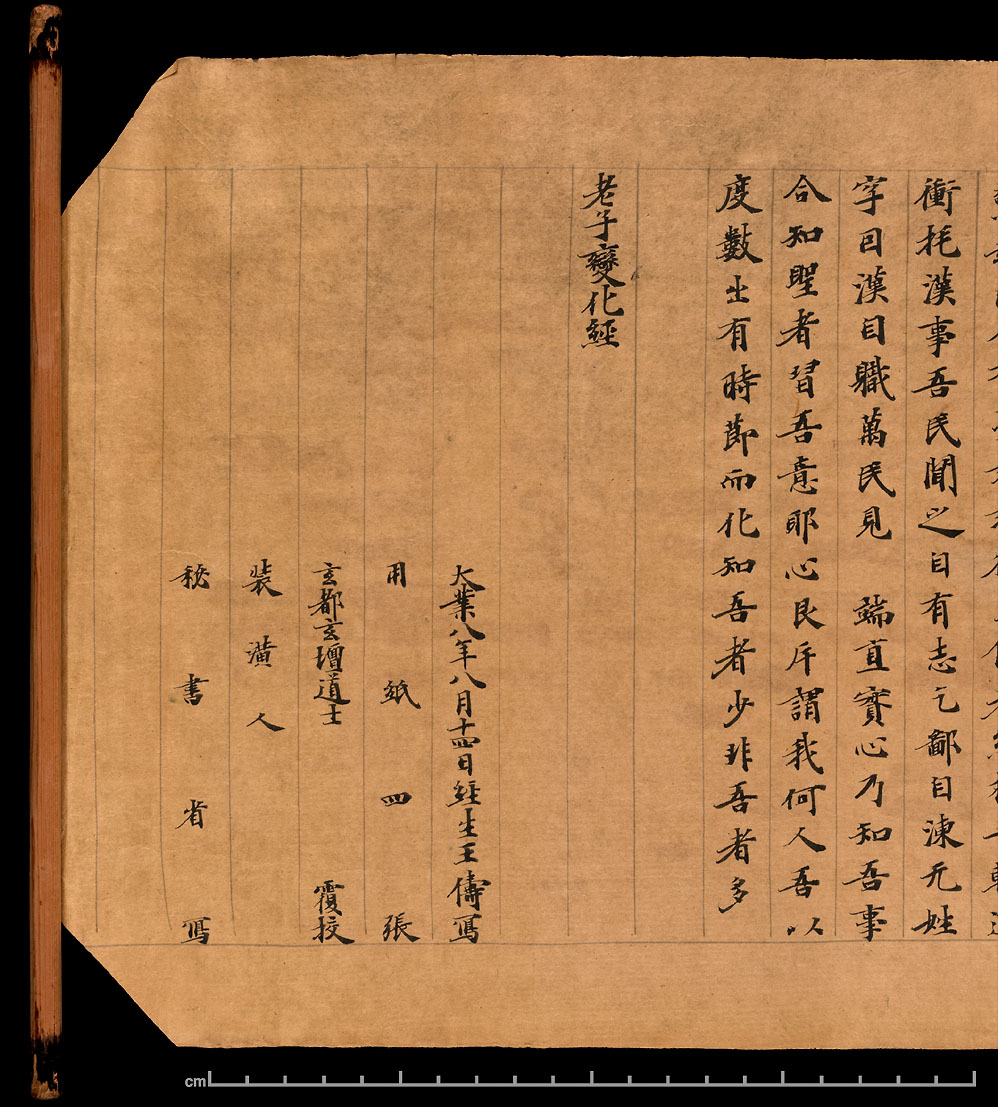 衝托漢事吾民聞之自有志乞鄙自涷元姓
字曰漢自職萬民見　端直實心乃知吾事
合知聖者習吾意耶心艮斥謂我何人吾以
度數出有時節而化知吾者少非吾者多
老子變化經
大業八年八月十四日經生王儔寫
用紙四張
玄都玄壇道士　覆挍
裝潢人
秘書省寫
cm